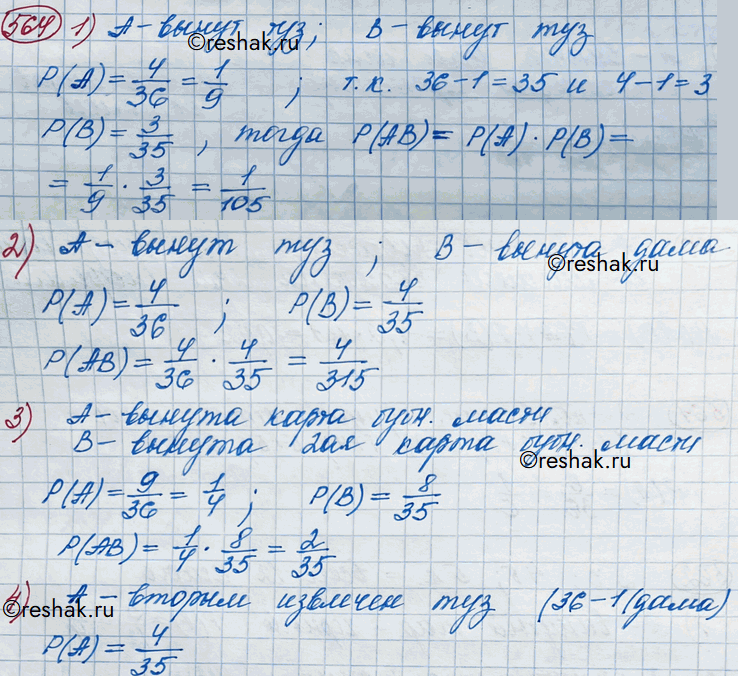 564 1) A - вынут туз; B - вынут туз
©reshak.ru
P(A) = 4/36 = 1/9 ; т.к. 36-1=35 и 4-1=3
P(B) = 3/35 , тогда P(AB) = P(A) · P(B) =
= 1/9 · 3/35 = 1/105
2) A - вынут туз ; B - вынута дама
©reshak.ru
P(A) = 4/36 ; P(B) = 4/35
P(AB) = 4/36 · 4/35 = 4/315
3) A - вынута карта бубн. масти
B - вынута 2ая карта бубн. масти
©reshak.ru
P(A) = 9/36 = 1/4 ; P(B) = 8/35
P(AB) = 1/4 · 8/35 = 2/35
4) A - вторым извлечен туз (36-1(дама)
©reshak.ru
P(A) = 4/35